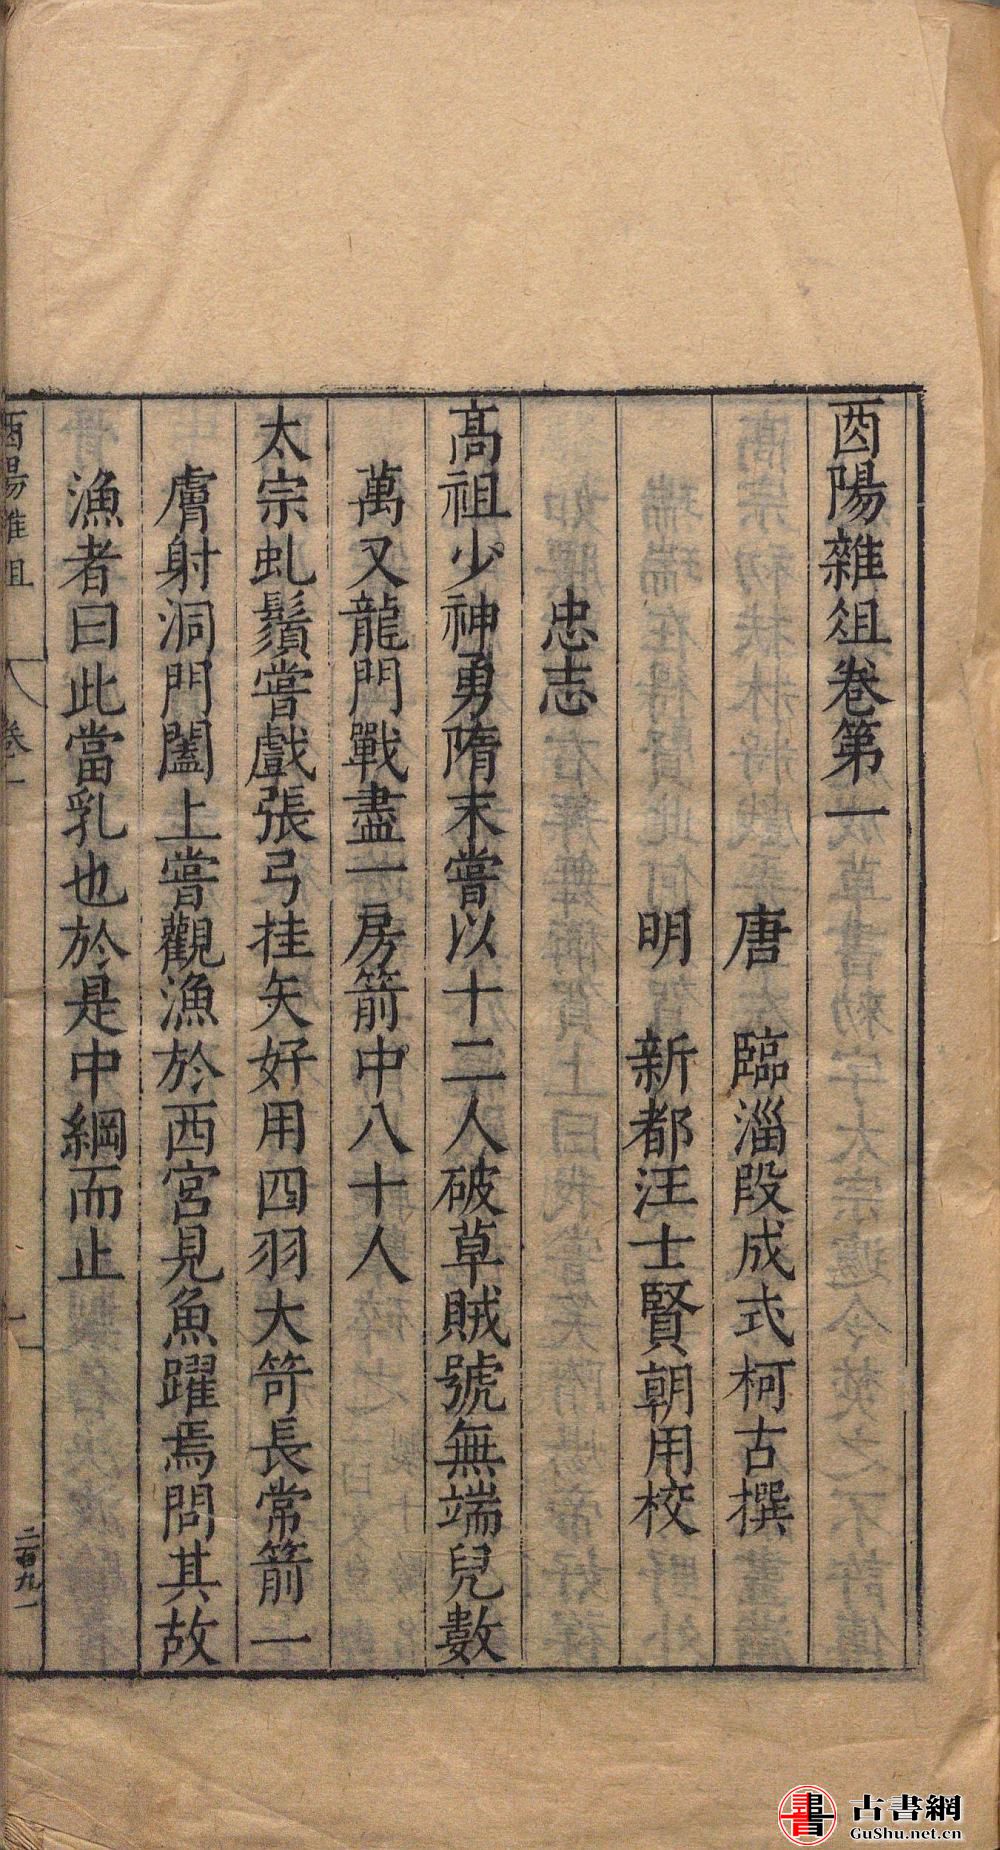 酉陽雜俎卷第一
唐　臨淄段成式柯古撰
明　新都汪士賢朝用校
忠志
高祖少神勇隋末嘗以十二人破草賊號無端兒數
萬又龍門戰盡一房箭中八十人
太宗虬鬚嘗戲張弓挂矢好用四羽大笴長常箭一
膚射洞門闔上嘗觀漁於西宮見魚躍焉問其故
漁者曰此當乳也於是中網而止
酉陽雜俎　卷一　一
古書網
GuShu.net.cn